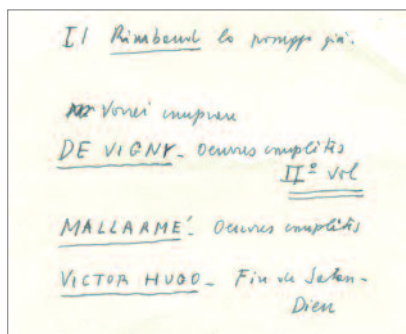 Il Rimbaud lo
Vorrei comprare
DE VIGNY - Oeuvres complètes
II° vol
MALLARMÉ - Oeuvres complètes
VICTOR HUGO - Fin de Satan -
Dieu